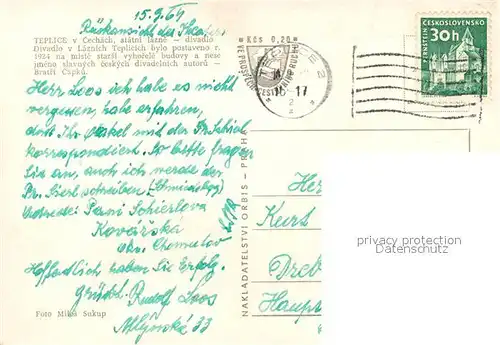 15.9.69
Rückansicht des Theaters
TEPLICE v Čechách, státní lázně — divadlo
Divadlo v Lázních Teplicích bylo postaveno r.
1924 na místě starší vyhořelé budovy a nese
jméno slavných českých divadelních autorů —
Bratří Čapků.
Kčs 0,20
ČESKOSLOVENSKO
30h
PERNŠTEJN
16 17
2
Herr Loos ich habe es nicht
vergessen, habe erfahren,
daß Ihr Onkel mit der Fr. Schiel
korrespondiert. So bitte fragen
Sie an, auch ich werde der
Fr. Siertl schreiben, (Schmiedeberg)
Adresse: Paní Schierlova
Kovářská
okr. Chomutov
ČSSR
Hoffentlich haben Sie Erfolg.
Grüßt Rudolf Loos
Mlýnská 33
Foto Miloš Sukup
NAKLADATELSTVÍ ORBIS - PRAHA
Her
Kurt
Dreb
Haup
privacy protection
Datenschutz